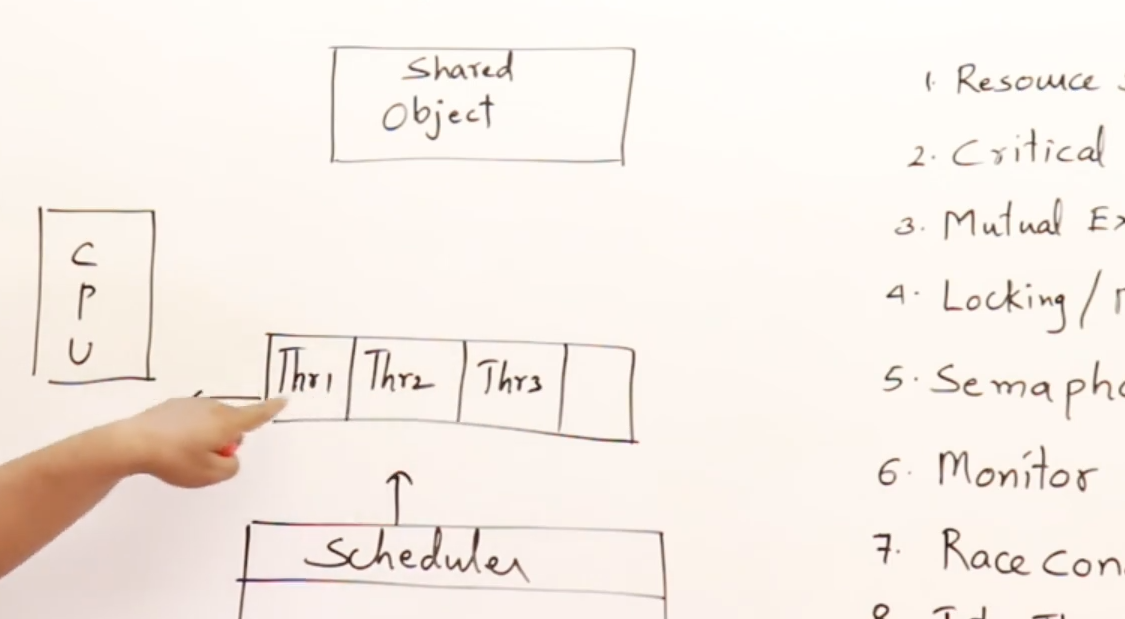 Shared
Object
C
P
U
Thr1 Thr2 Thr3
Scheduler
1. Resource
2. Critical
3. Mutual Ex
4. Locking /
5. Semapho
6. Monitor
7. Race Con
8.